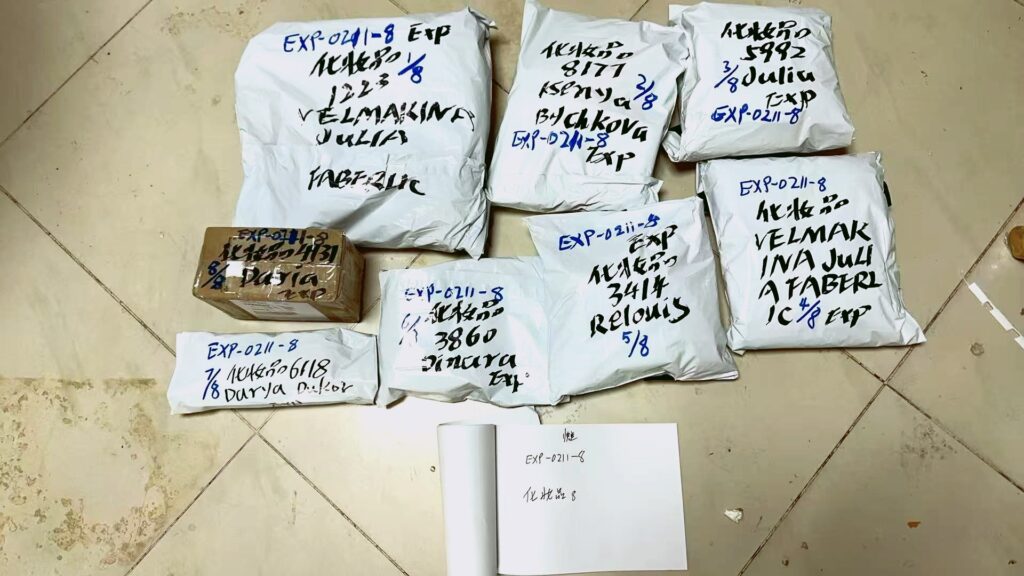 EXP-0211-8 Exp
化妆品
1/8
1223
VELMAKINA
JULIA
FABERLIC
化妆品
8177
2/8
Ksenya
Bychkova
EXP-0211-8
Exp
化妆品
5992
3/8 Julia
Exp
EXP-0211-8
EXP-0211-8
化妆品
VELMAK
INA JULI
A FABERL
IC 4/8 Exp
EXP-0211-8
Exp
化妆品
3414
Relouis
5/8
EXP-0211-8
化妆品
3860
Dinara
Exp
EXP-0211-8
7/8 化妆品6118
Darya
EXP-0211-8
化妆品4131
8/8 Daria
Exp
EXP-0211-8
化妆品 8